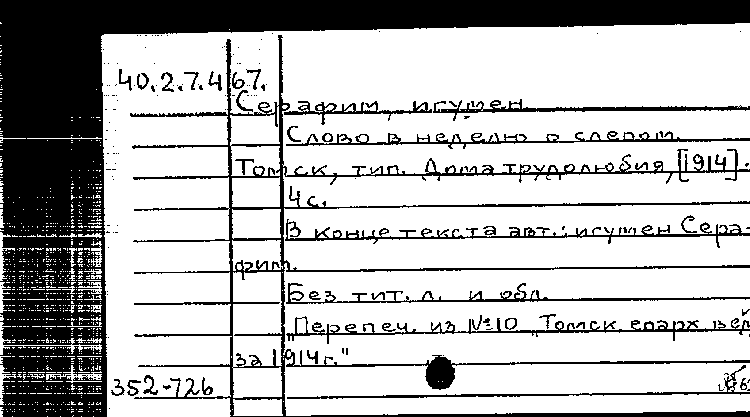 40.2.7.467.
Серафим, игумен.
Слово в неделю о слепом.
Томск, тип. Дома трудолюбия, [1914].
4 с.
В конце текста авт.: игумен Сера-
фим.
Без тит. л. и обл.
„Перепеч. из №10 „Томск. епарх вед
за 1914г."
352-726